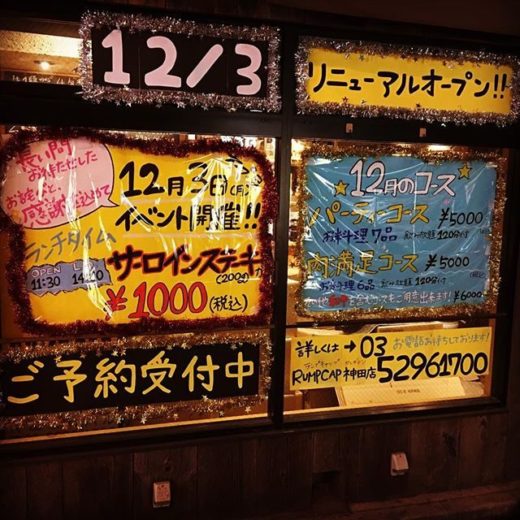 12/3
リニューアルオープン!!
長い間
お待たせした
おきもちと、
感謝を込めて
12月3日(月)
イベント開催!!
ランチタイム
OPEN
11:30
サーロインステーキ
(200g)
¥1000(税込)
12月のコース
パーティーコース ¥5000
お料理7品 飲み放題 120分付
肉満足コース ¥5000
お料理6品 飲み放題 120分付
¥6000
ご予約受付中
詳しくは→03
お電話お待ちしております!
RUMPCAP 神田店 52961700